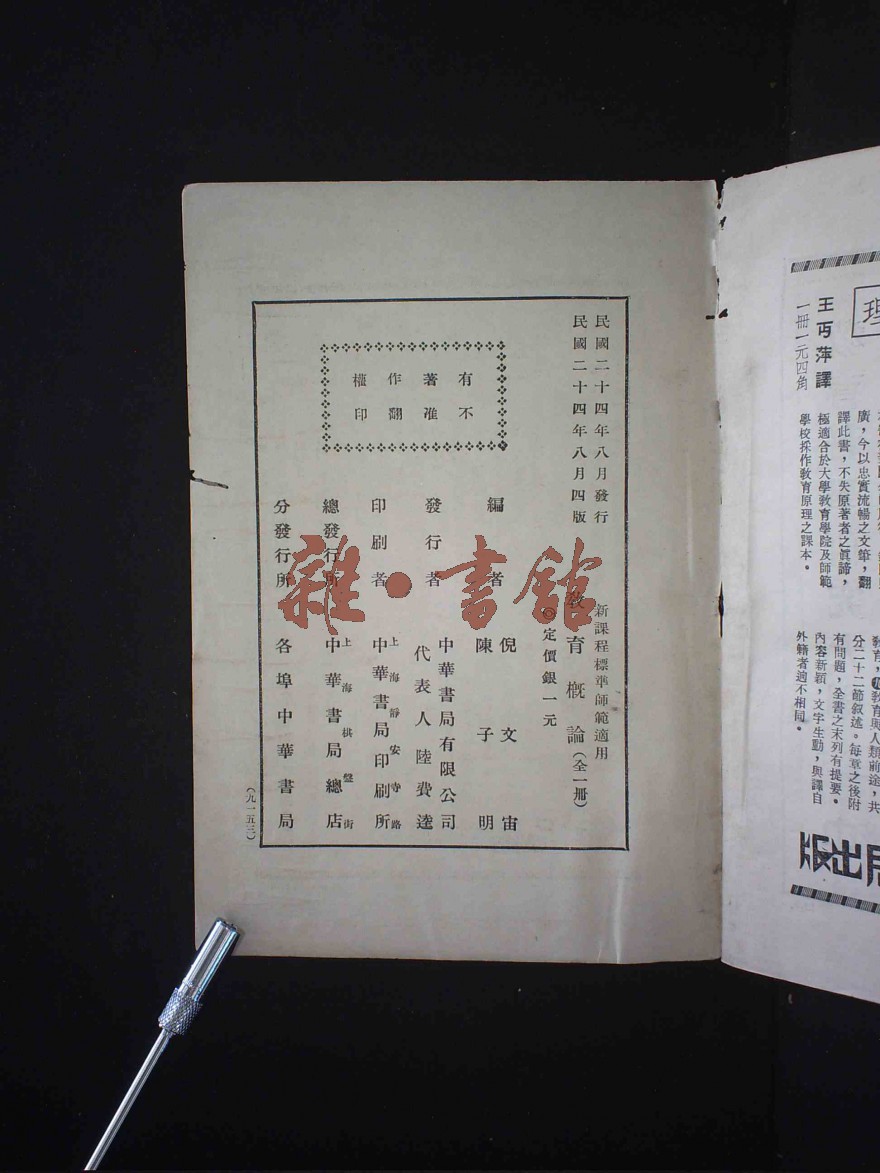 民國二十四年八月發行
民國二十四年八月四版
新課程標準師範適用
教育概論（全一冊）
◎定價銀一元
有著作權
不准翻印
編者
倪文宙
陳子明
發行者
中華書局有限公司
代表人陸費逵
印刷者
上海靜安寺路
中華書局印刷所
總發行所
上海棋盤街
中華書局總店
分發行所
各埠中華書局
（九一五三）
雜·書館
理
王丏萍譯
一冊一元四角
廣，今以忠實流暢之文筆，翻
譯此書，不失原著者之眞諦，
極適合於大學教育學院及師範
學校採作教育原理之課本。
教育與人類前途，共
分二十二節叙述。每章之後附
有問題，全書之末列有提要。
內容新穎，文字生動，與譯自
外籍者逈不相同。
局出版